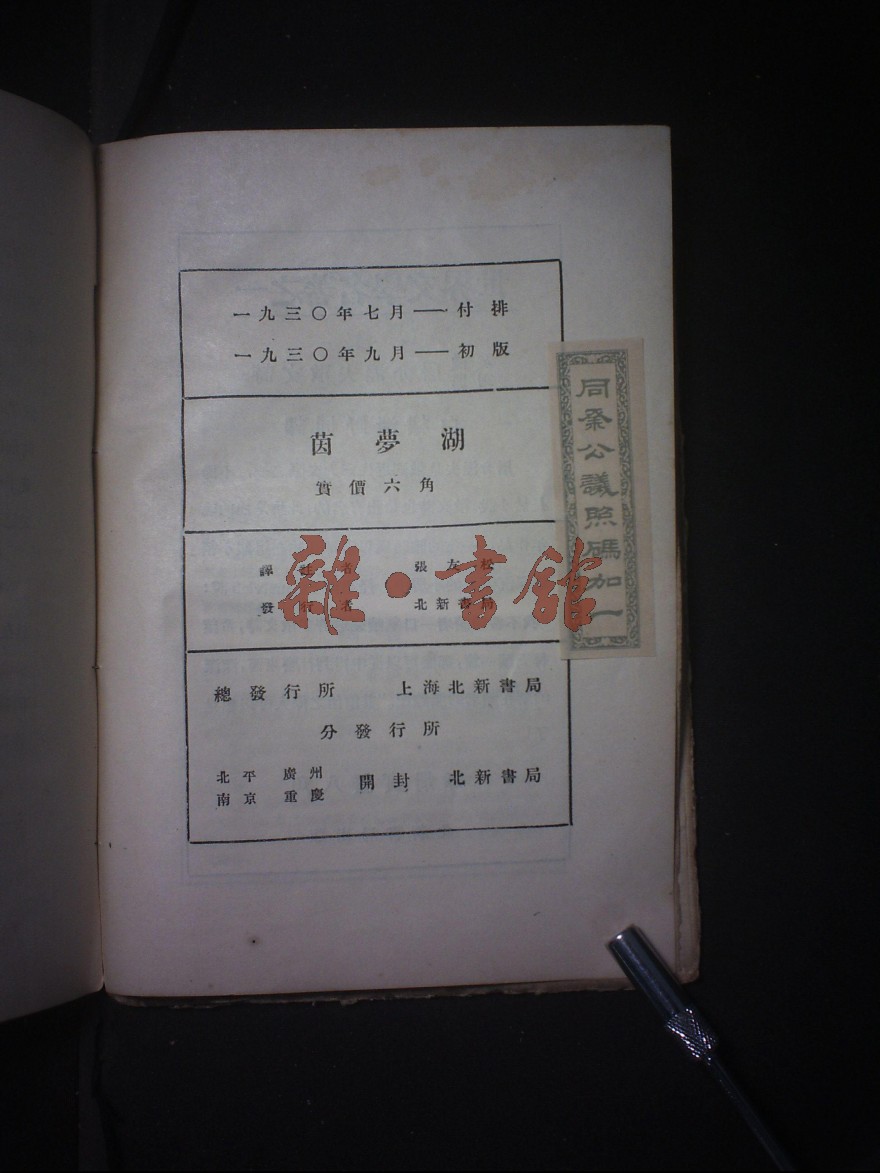 一九三〇年七月——付排
一九三〇年九月——初版
茵夢湖
實價六角
譯註者 張友松
發行者 北新書局
雜·書館
同業公議照碼加一
總發行所 上海北新書局
分發行所
北平 廣州
南京 重慶
開封 北新書局